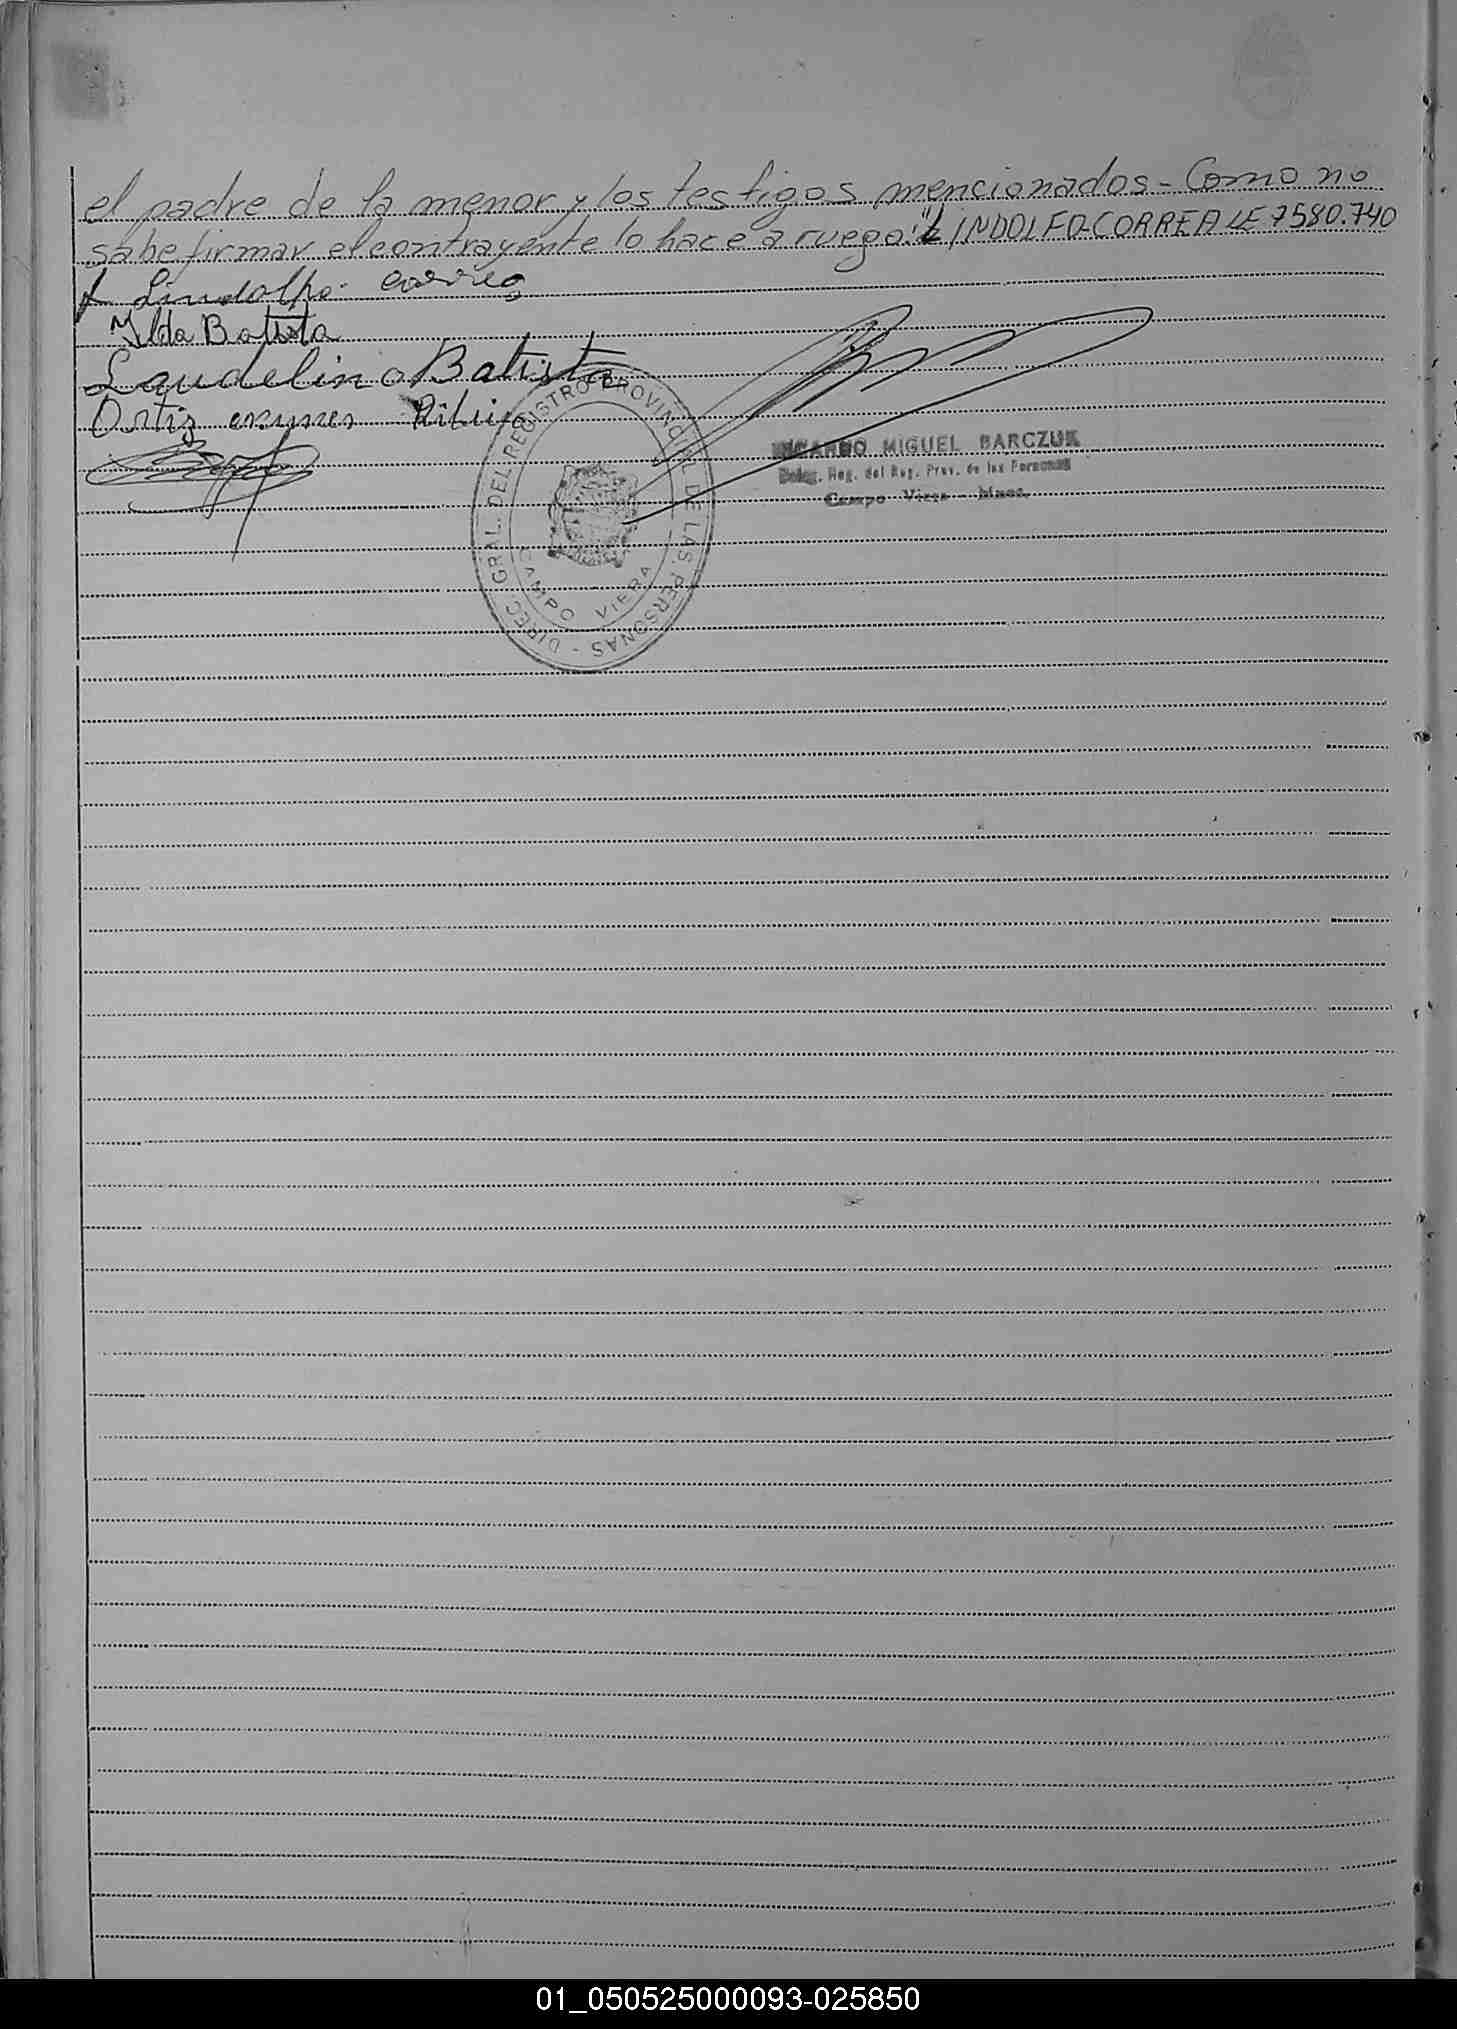 el padre de la menor y los testigos mencionados - Como no
sabe firmar el contrayente lo hace a ruego: LINDOLFO-CORREA LE 7580.740
Lindolfo Correa
Ilda Batista
Laudelino Batista
Ortiz
DIREC. GRAL. DEL REGISTRO PROVINCIAL DE LAS PERSONAS -
CAMPO VIERA
RICARDO MIGUEL BARCZUK
Deleg. Reg. del Reg. Prov. de las Personas
Campo Viera - Mnes.
01_050525000093-025850